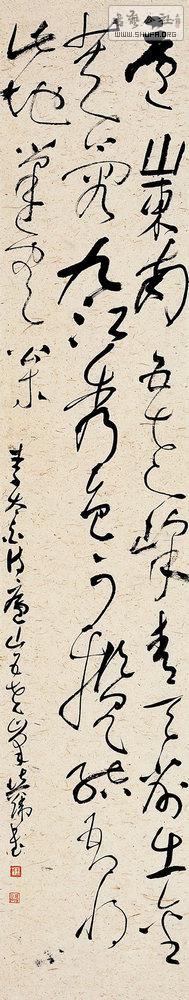 廬山東南五老峰青天削出金
芙蓉九江秀色可攬結吾將
此地巢雲松
李太白詩廬山五老峰
書法公社
WWW.SHUFA.ORG